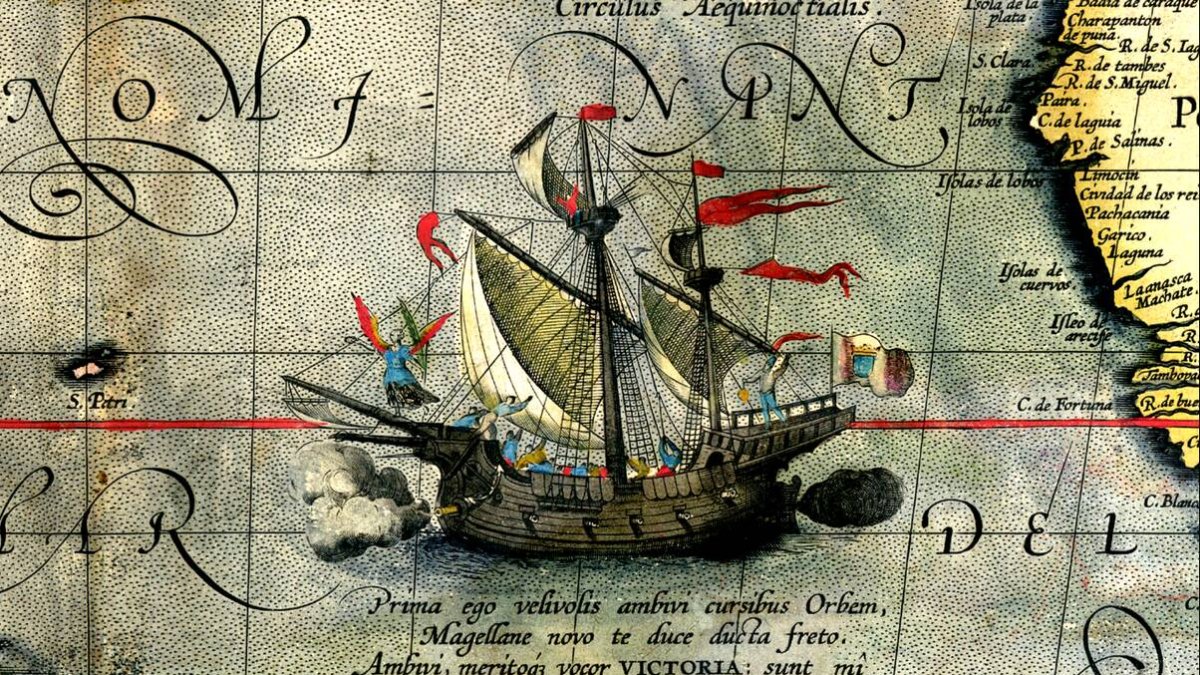 Circulus Aequinoctialis.
NOMI= NANT,
S. Pétri
MAR DEL
Prima ego velivolis ambivi cursibus Orbem,
Magellane novo te duce ducta freto.
Ambivi, meritoq₃ vocor VICTORIA: sunt mî
Isola de la
plata
Badia de caraque
Charapanton
de puna
R. de S. Iag
S. Clara
R. de tambes
R. de S. Miguel.
Isola de
lobos
Paira.
C. de laguia
P. de Salinas.
Isolas de lobos
Limocin
Cividad de los rei
Pachacania
Garico.
Laguna
Isolas de
cuervos.
Laanasca
Machate.
Isleo de
arecife
Tambopa
C. de Fortuna
R. de bue
C. Blan